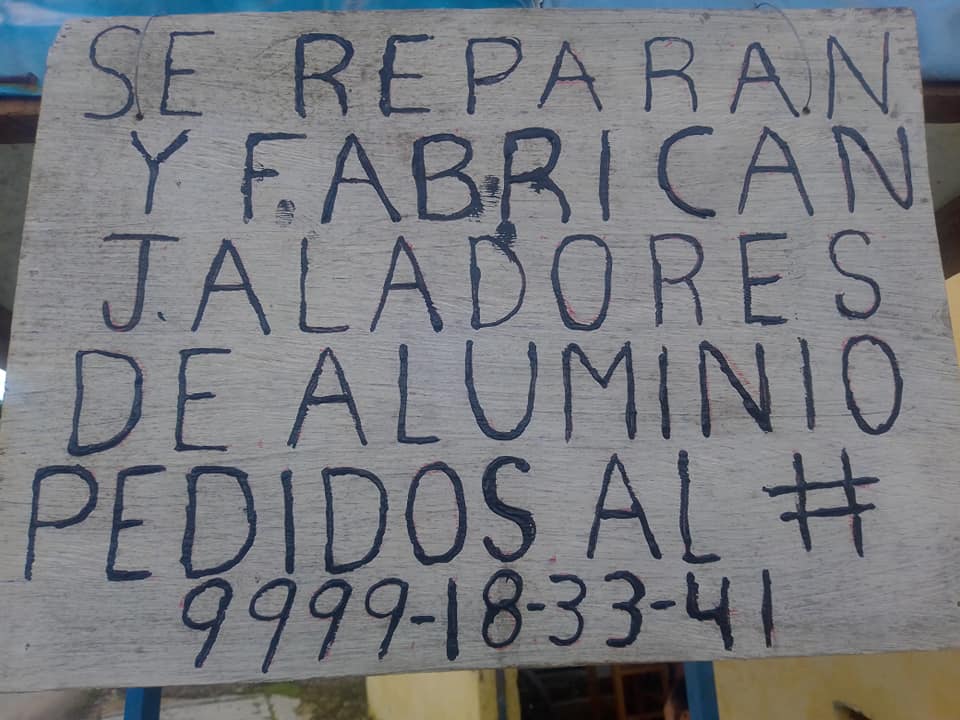 SE REPARAN
Y F.ABRICAN
J.ALADORES
DE ALUMINIO
PEDIDOS AL #
9999-18-33-41